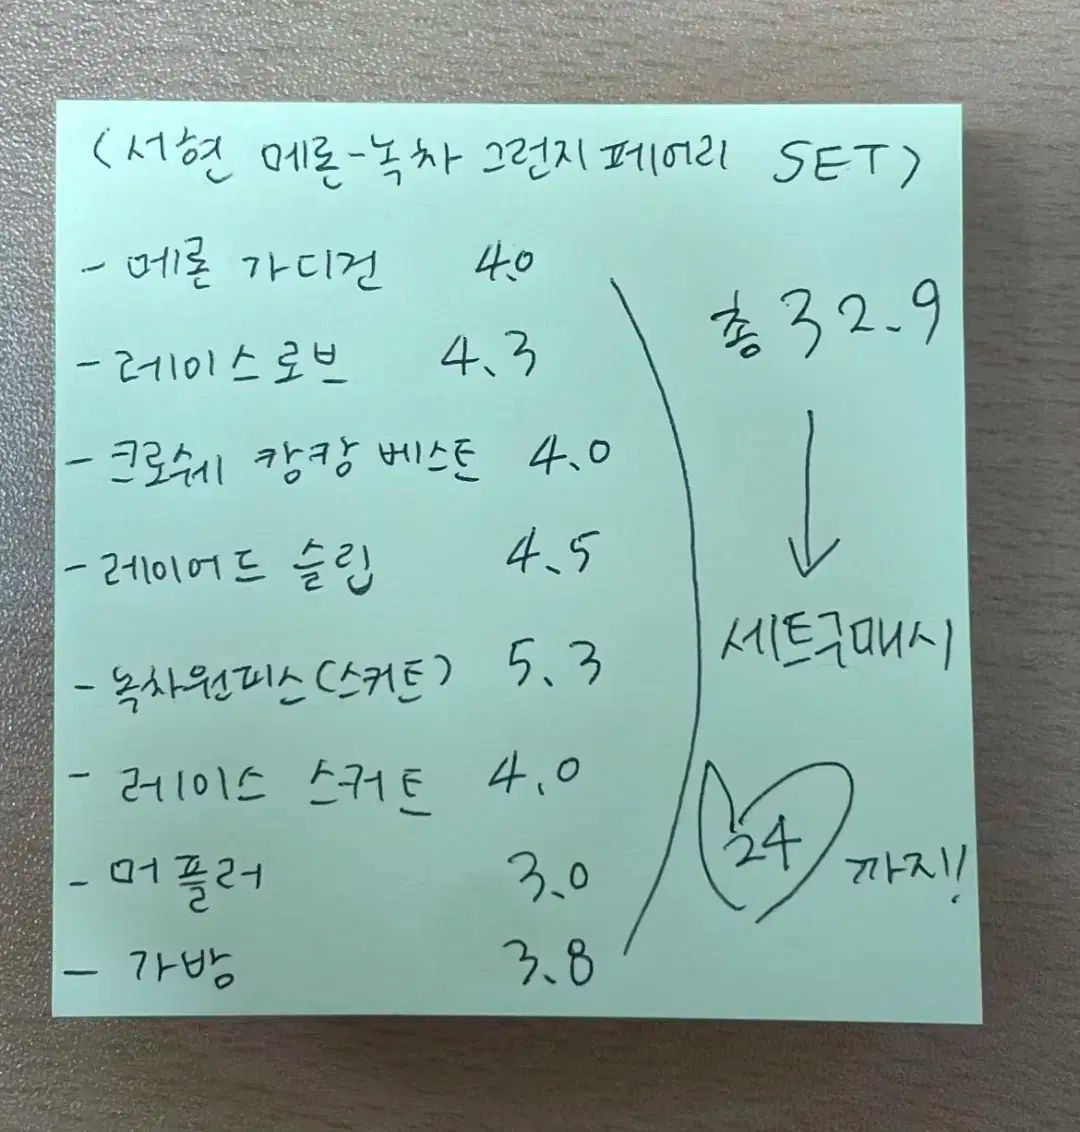 <서현 메론-녹차 그런지 페어리 SET>
- 메론 가디건 4.0
- 레이스로브 4.3
- 크로쉐 캉캉 베스트 4.0
- 레이어드 슬립 4.5
- 녹차원피스(스커트) 5.3
- 레이스 스커트 4.0
- 머플러 3.0
- 가방 3.8
총 32.9
↓
세트구매시
24 까지!!